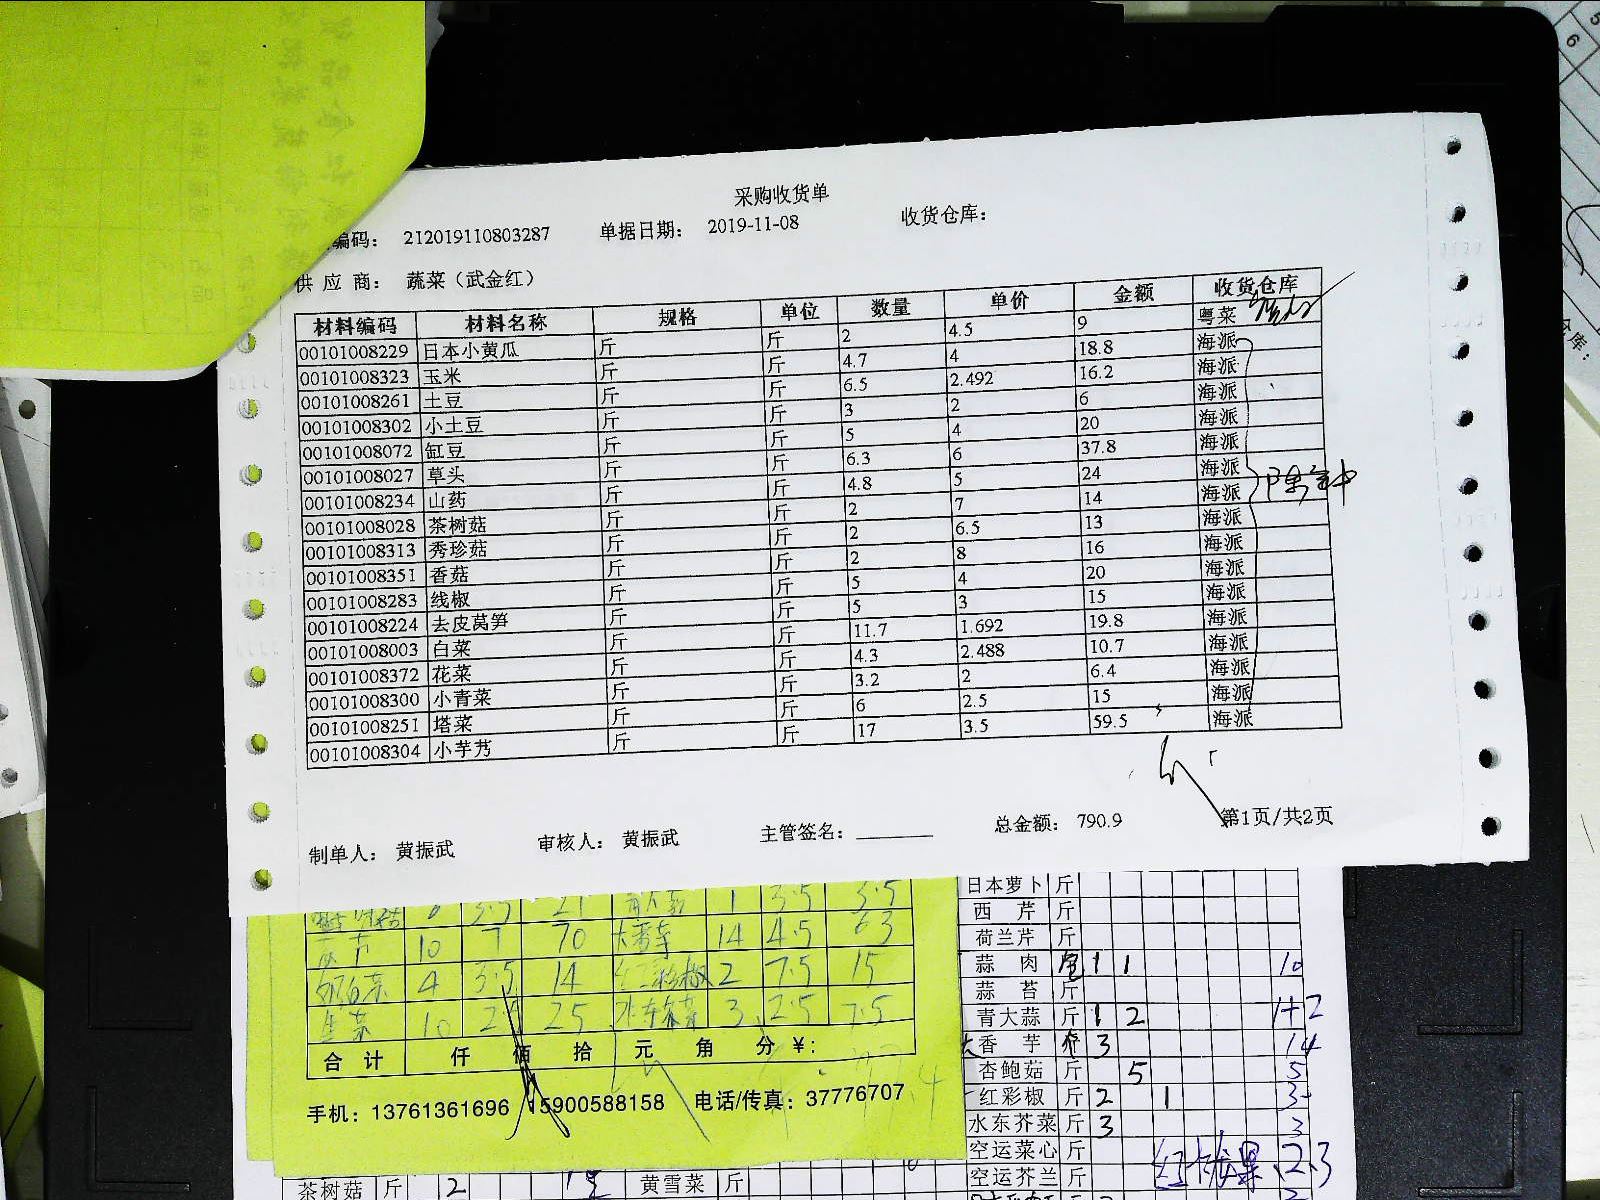 采购收货单
编码： 212019110803287 单据日期： 2019-11-08 收货仓库：
供 应 商： 蔬菜（武金红）
材料编码 材料名称 规格 单位 数量 单价 金额 收货仓库
00101008229 日本小黄瓜 斤 斤 2 4.5 9 粤菜
00101008323 玉米 斤 斤 4.7 4 18.8 海派
00101008261 土豆 斤 斤 6.5 2.492 16.2 海派
00101008302 小土豆 斤 斤 3 2 6 海派
00101008072 缸豆 斤 斤 5 4 20 海派
00101008027 草头 斤 斤 6.3 6 37.8 海派
00101008234 山药 斤 斤 4.8 5 24 海派
00101008028 茶树菇 斤 斤 2 7 14 海派
00101008313 秀珍菇 斤 斤 2 6.5 13 海派
00101008351 香菇 斤 斤 2 8 16 海派
00101008283 线椒 斤 斤 5 4 20 海派
00101008224 去皮莴笋 斤 斤 5 3 15 海派
00101008003 白菜 斤 斤 11.7 1.692 19.8 海派
00101008372 花菜 斤 斤 4.3 2.488 10.7 海派
00101008300 小青菜 斤 斤 3.2 2 6.4 海派
00101008251 塔菜 斤 斤 6 2.5 15 海派
00101008304 小芋艿 斤 斤 17 3.5 59.5 海派
制单人： 黄振武 审核人： 黄振武 主管签名： 总金额： 790.9 第1页/共2页
3.5 21 1 3.5 3.5
10 7 70 大香芋 14 4.5 63
4 3.5 14 红彩椒 2 7.5 15
生菜 10 2.5 25 水东芥菜 3 2.5 7.5
合 计 仟 佰 拾 元 角 分 ¥：
手机：13761361696 15900588158 电话/传真：37776707
日本萝卜 斤
西 芹 斤
荷兰芹 斤
蒜 肉 包 1 1 10
蒜 苔 斤
青大蒜 斤 1 2 1+2
大香 芋 斤 3 14
杏鲍菇 斤 5 5
红彩椒 斤 2 1 3
水东芥菜 斤 3 3
空运菜心 斤
空运芥兰 斤
2.3
茶树菇 斤 2 黄雪菜 斤